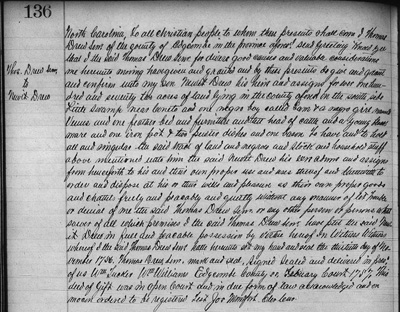 136
Thos. Drew Senr
to
Newit Drew
North Carolina, To all Christian people to whom these presents shall come I Thomas
Drew Senr of the county of Edgecomb in the province aforsd. send Greeting Know ye
that I the said Thomas Drew Senr for divers good causes and valuable considerations
me hereunto moving have given and granted and by these presents do give and grant
and confirm unto my son Newit Drew his heirs and assigns forever one hun-
dred and seventy two acres of land lying in the county aforesd on the south side
Little Swamp near Coneto and one negro boy called Sam & a negro girl named
Venus and one feather bed and furniture and ten head of cattle and a young
mare and one iron pot & two pewter dishes and one bason To have and to hold
all and singular the said tract of land and negroes and stock and household stuff
above mentioned unto him the said Newit Drew his heirs and assigns
from henceforth to his and their own proper use and uses thereof and therewith to
order and dispose at his or their wills and pleasure as their own proper goods
and chattels freely and peaceably and quietly without any manner of let trouble
or denial of me the said Thomas Drew Senr or any other person or persons what-
soever of all which premises I the said Thomas Drew Senr have put the said New-
it Drew in full and peaceable possession by these presents In Witness
whereof I the said Thomas Drew Senr have hereunto set my hand and seal the thirtieth day of No-
vember 1756. Thomas Drew, Senr mark and seal, signed sealed and delivered in pres.
of us Wm Tucker Wm Williams Edgecombe County ss February Court 1757 This
deed of Gift was in open Court and in due form of law acknowledged and on
motion ordered to be registered Test Jos Montfort Clk Cur